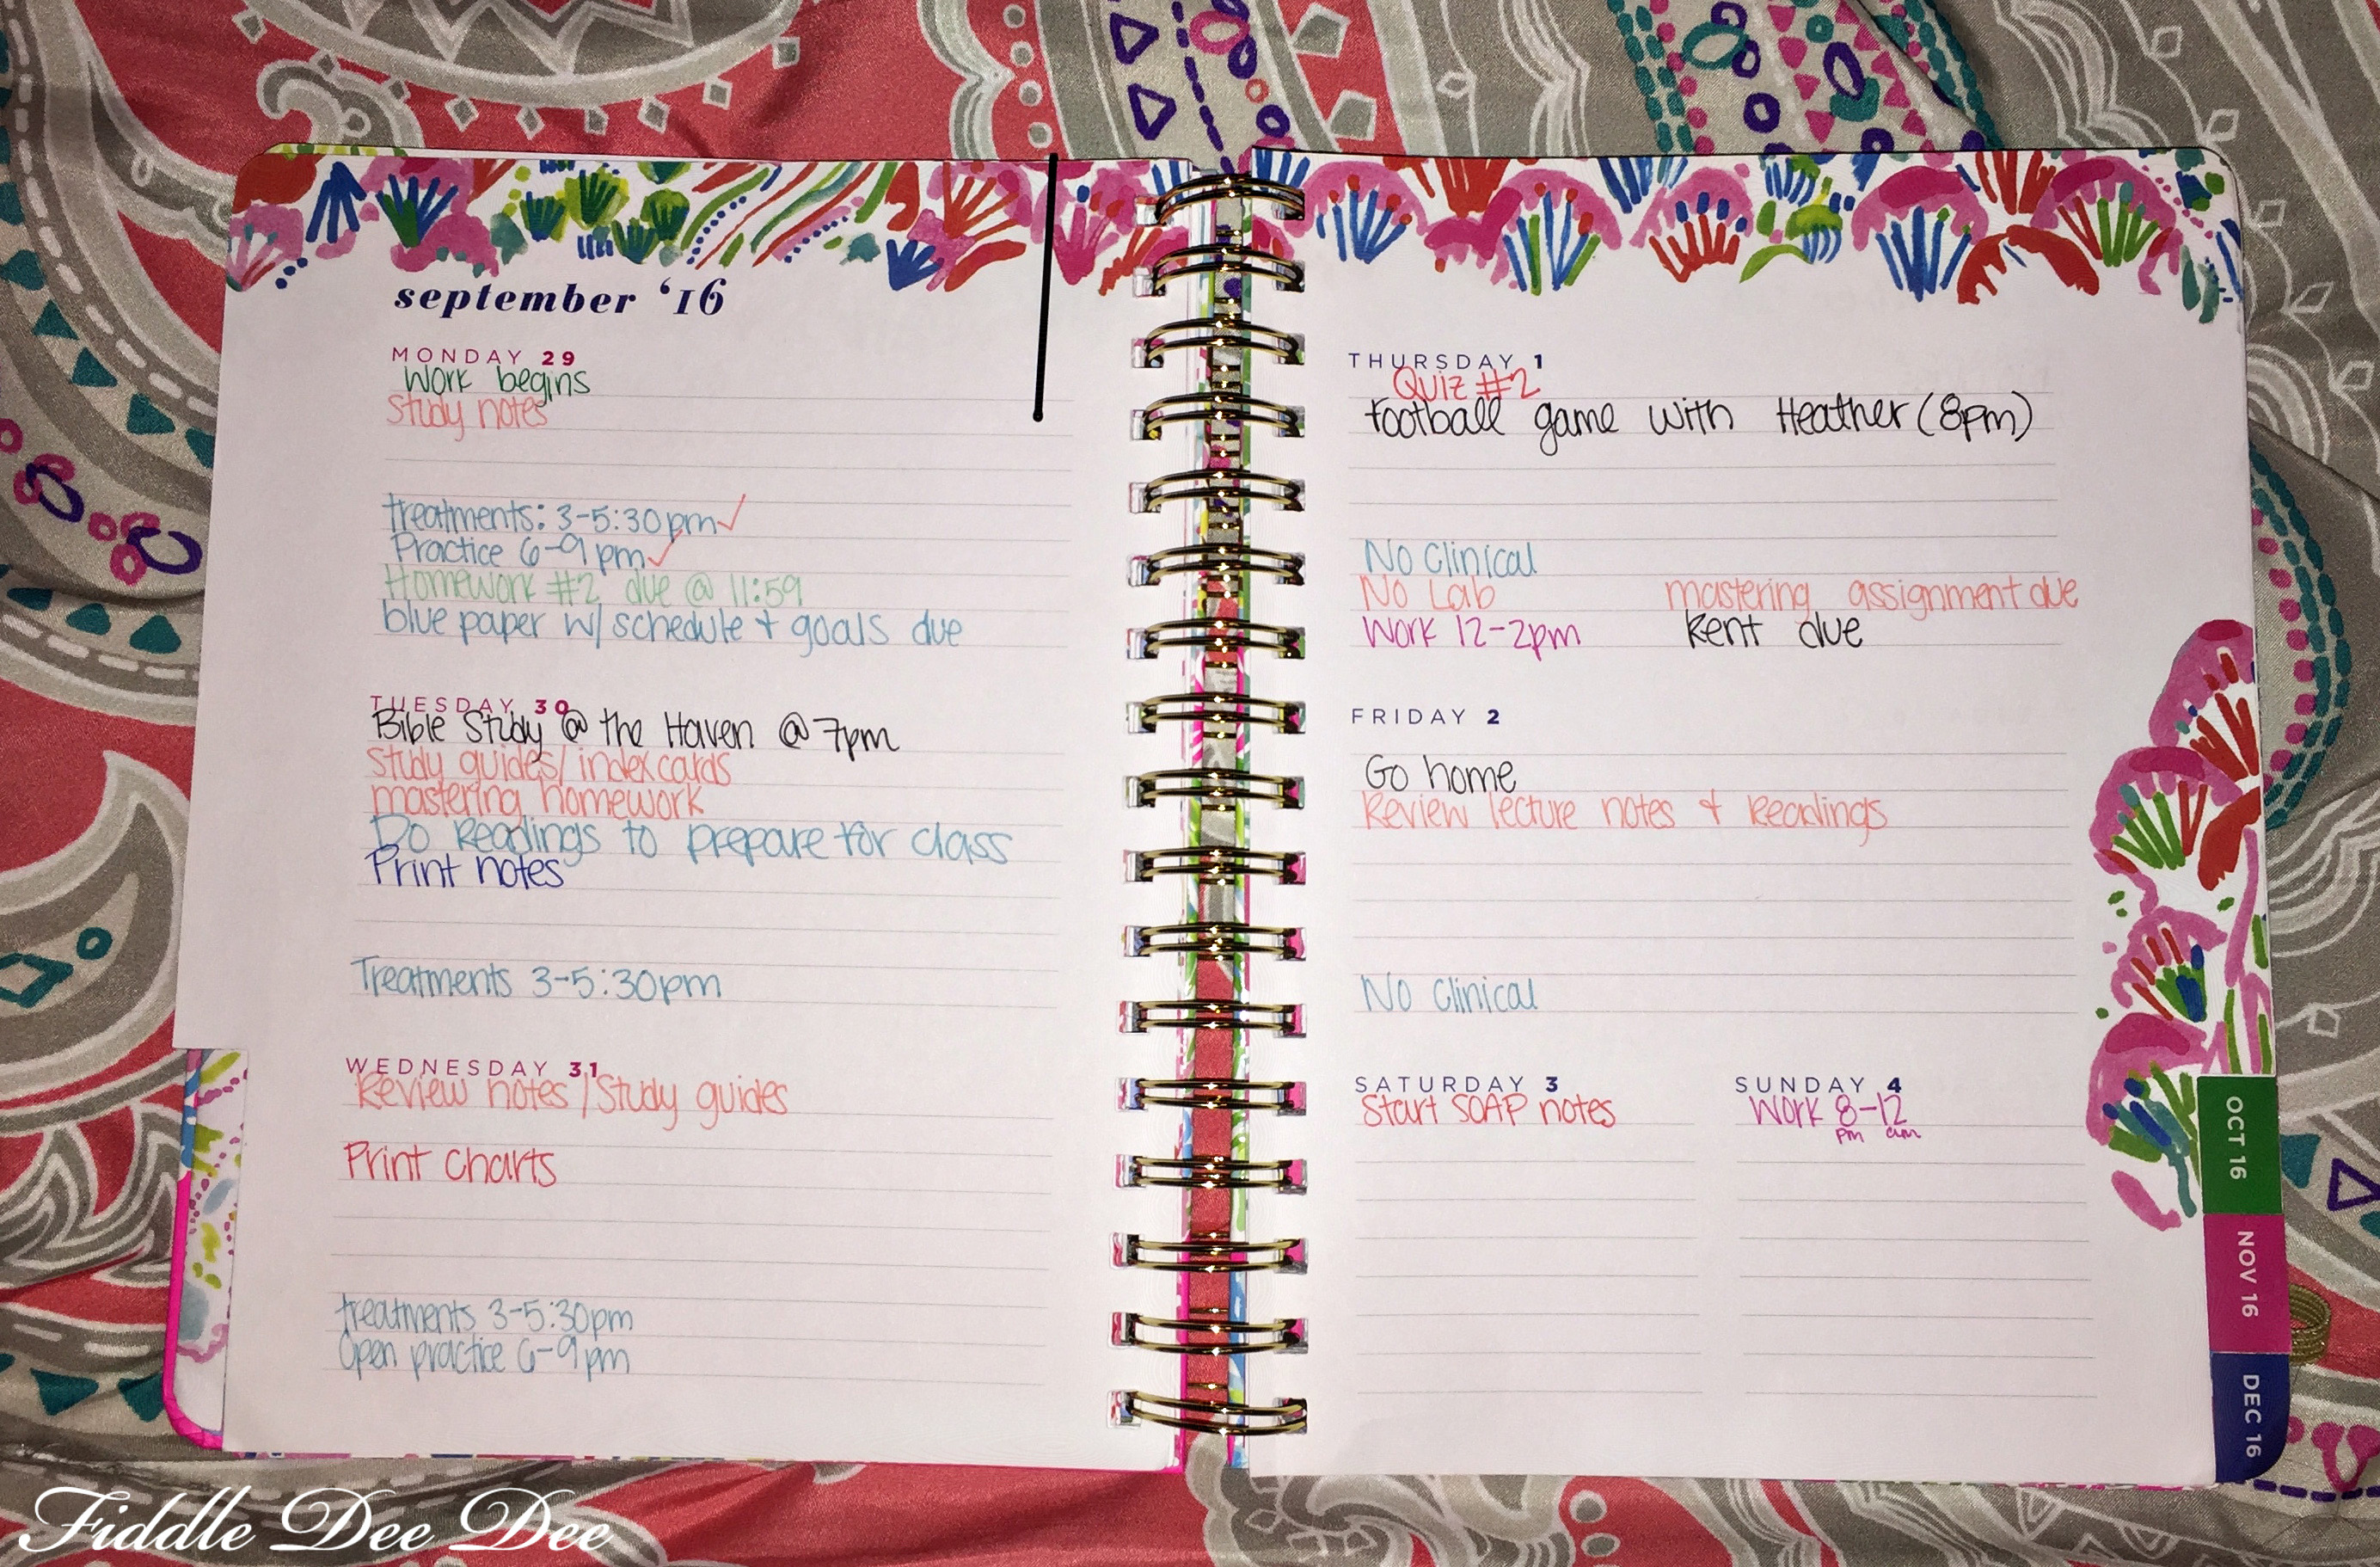 september ‘16
MONDAY 29
Work begins
Study notes
treatments: 3-5:30pm✓
Practice 6-9pm✓
Homework #2 due @ 11:59
blue paper w/ schedule + goals due
TUESDAY 30
Bible Study @ the Haven @ 7pm
Study guides/index cards
mastering homework
Do Readings to prepare for class
Print notes
Treatments 3-5:30pm
WEDNESDAY 31
Review notes/Study guides
Print Charts
treatments 3-5:30pm
Open practice 6-9pm
THURSDAY 1
Quiz #2
football game with Heather (8pm)
No Clinical
No Lab mastering assignment due
Work 12-2pm Rent due
FRIDAY 2
Go home
Review lecture notes + Readings
No Clinical
SATURDAY 3
Start SOAP notes
SUNDAY 4
Work 8-12
pm am
OCT 16
NOV 16
DEC 16
Fiddle Dee Dee